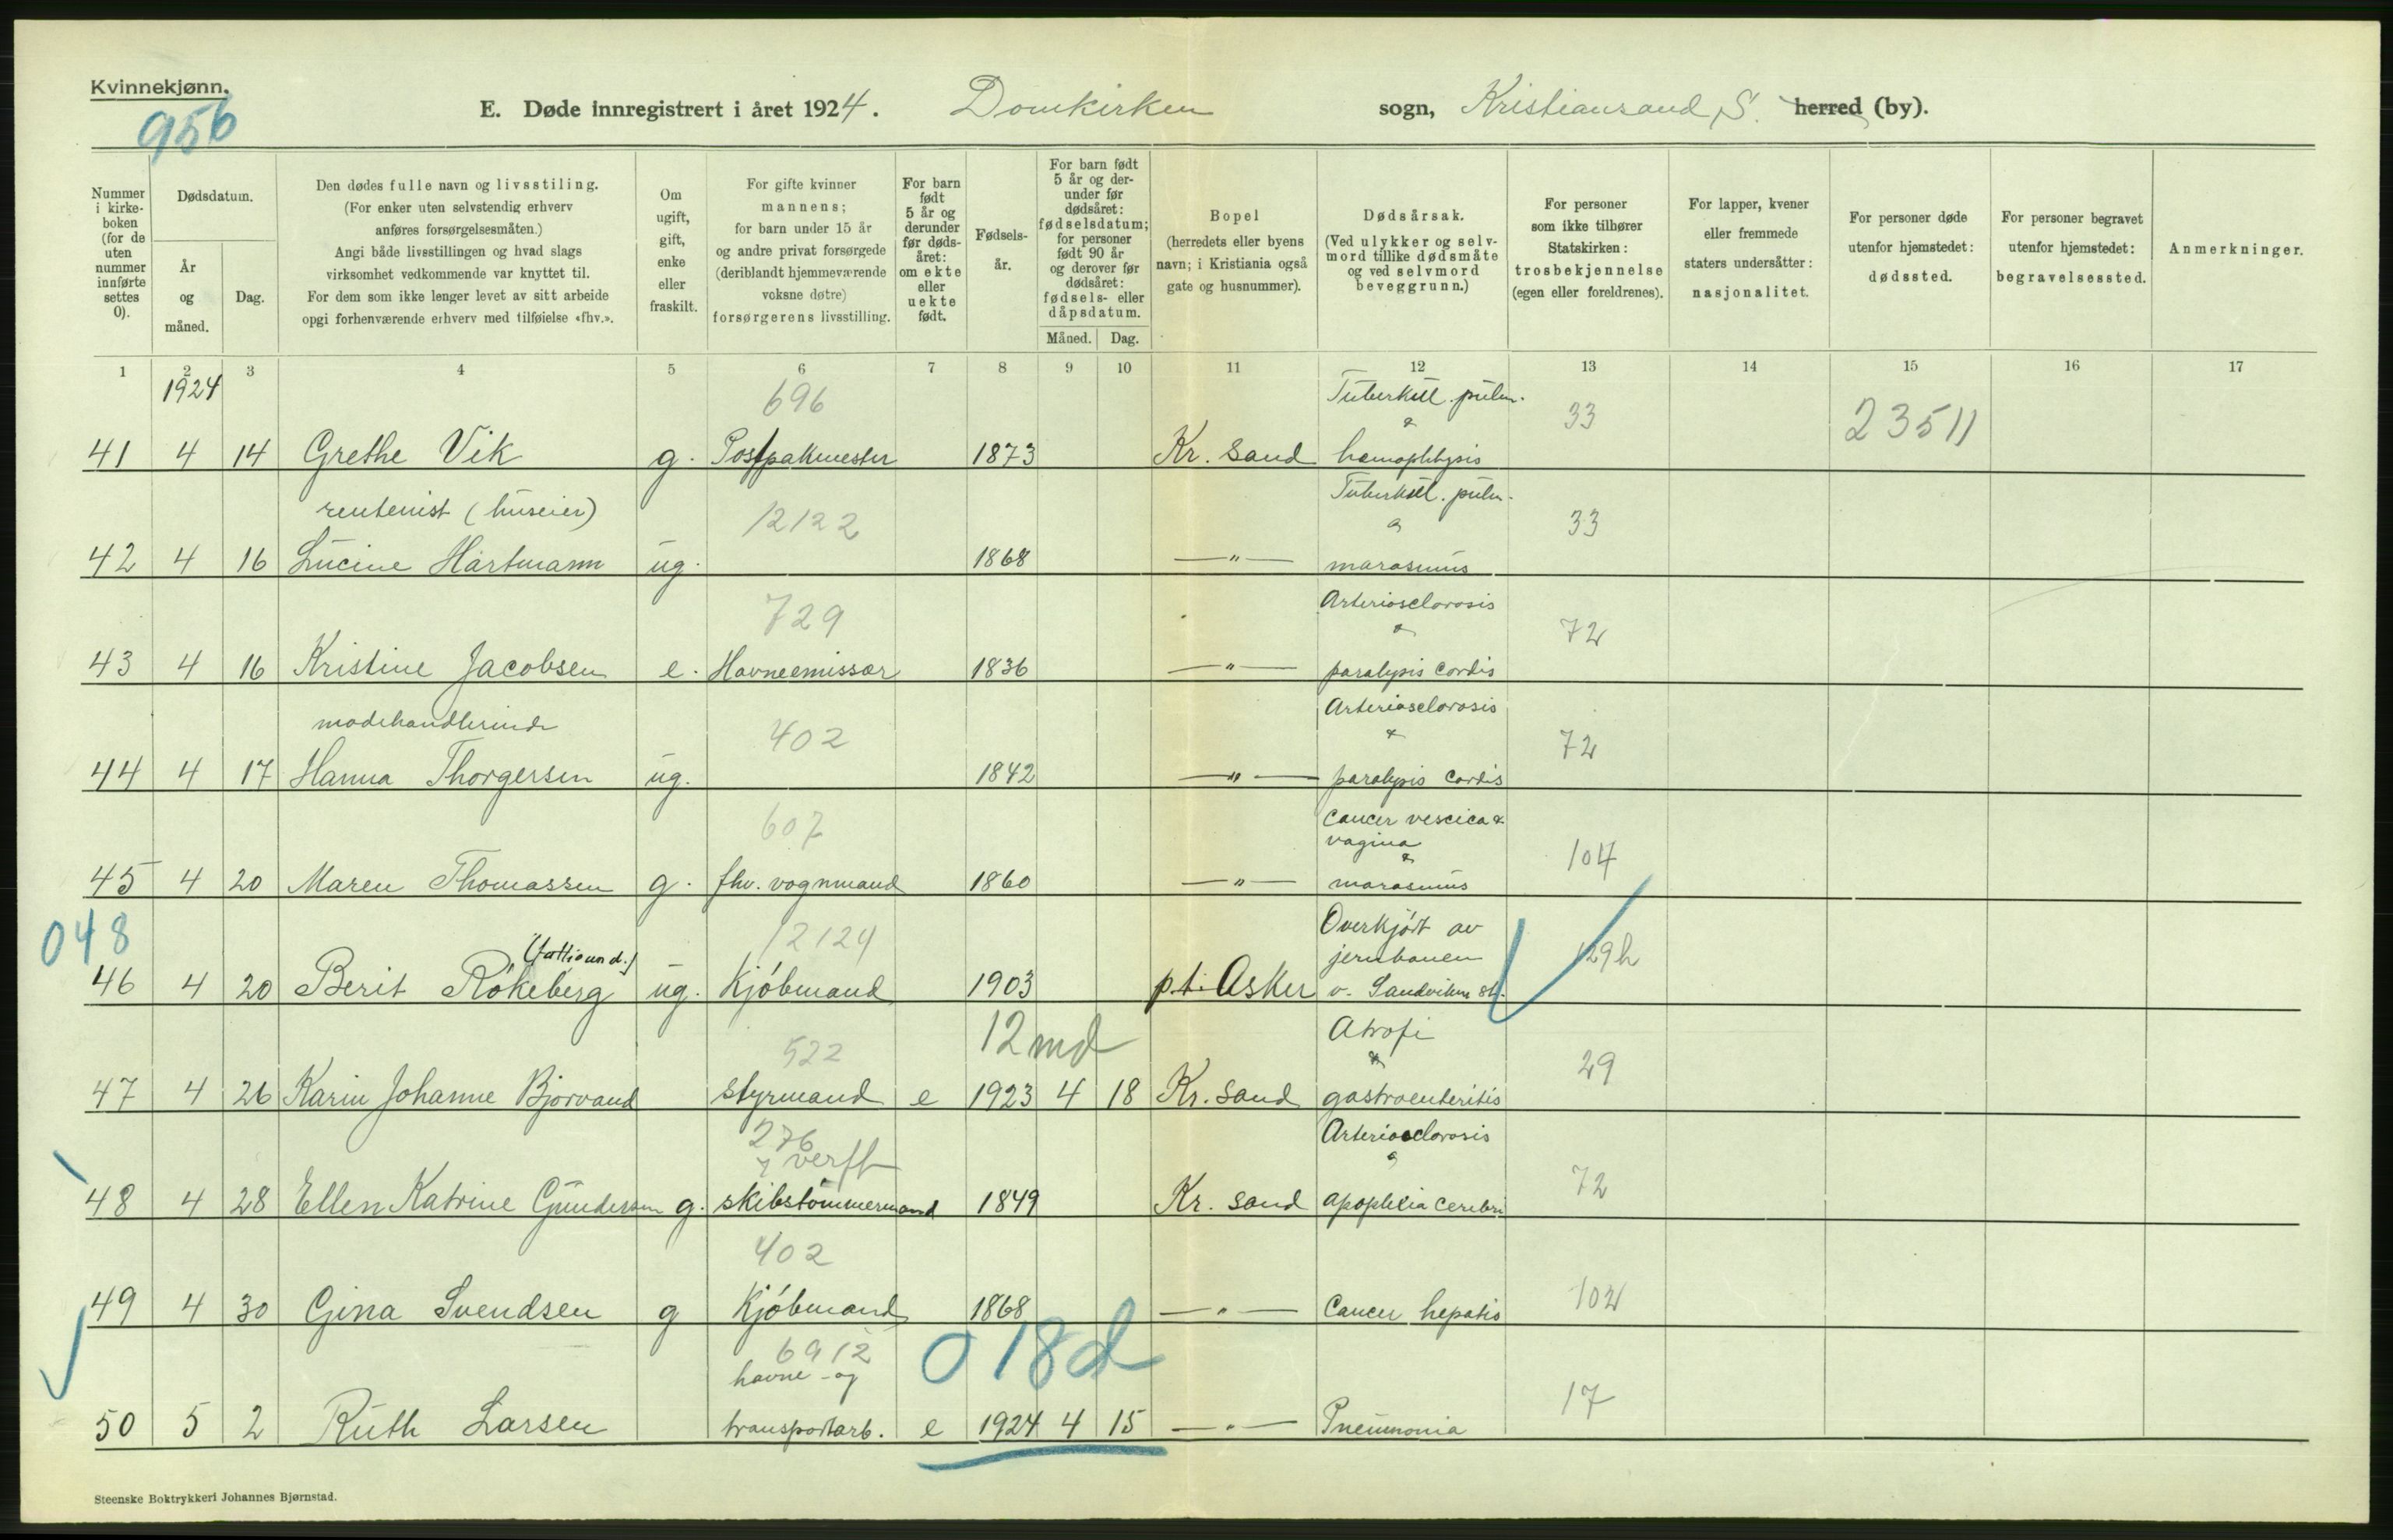 Kvinnekjønn.
956
E. Døde innregistrert i året 1924. Domkirken sogn, Kristiansand S. herred (by).
Nummer i kirke-boken (for de uten nummer innførte settes 0).
Dødsdatum.
År og måned.
Dag.
Den dødes fulle navn og livsstiling.
(For enker uten selvstendig erhverv
anføres forsørgelsesmåten.)
Angi både livsstillingen og hvad slags
virksomhet vedkommende var knyttet til.
For dem som ikke lenger levet av sitt arbeide
opgi forhenværende erhverv med tilføielse «fhv.».
Om ugift, gift, enke eller fraskilt.
For gifte kvinner
mannens;
for barn under 15 år
og andre privat forsørgede
(deriblandt hjemmeværende
voksne døtre)
forsørgerens livsstilling.
For barn født 5 år og derunder før døds-året: om ekte eller uekte født.
Fødsels-år.
For barn født
5 år og der-
under før
dødsåret:
fødselsdatum;
for personer
født 90 år
og derover før
dødsåret:
fødsels- eller
dåpsdatum.
Måned. Dag.
Bopel
(herredets eller byens
navn; i Kristiania også
gate og husnummer).
Dødsårsak.
(Ved ulykker og selv-
mord tillike dødsmåte
og ved selvmord
beveggrunn.)
For personer
som ikke tilhører
Statskirken:
trosbekjennelse
(egen eller foreldrenes).
For lapper, kvener
eller fremmede
staters undersåtter:
nasjonalitet.
For personer døde
utenfor hjemstedet:
dødssted.
For personer begravet
utenfor hjemstedet:
begravelsessted.
Anmerkninger.
1 2 3 4 5 6 7 8 9 10 11 12 13 14 15 16 17
1924
696 Tuberkul. pulm. 33 23511
&
41 4 14 Grethe Vik g. Postpakmester 1873 Kr. sand hemophtysis
rentenist (huseier) 12122 Tuberkul. pulm. 33
&
42 4 16 Lucine Hartmann ug. 1868 —"— marasmus
729 Arteriosclorosis 72
&
43 4 16 Kristine Jacobsen e. Havneemissær 1836 —"— paralysis cordis
modehandlerinde 402 Arteriosclorosis 72
&
44 4 17 Hanna Thorgersen ug. 1842 —"— paralysis cordis
607 Cancer vescica &
vagina 104
&
45 4 20 Maren Thomassen g. fhv. vognmand 1860 —"— marasmus
048 12124 Overkjørt av
jernbanen 129h
46 4 20 Berit Røkeberg ug. Kjøbmand 1903 p.t. Asker v. Sandviken st.
12 md
522 Atrofi 29
&
47 4 26 Karin Johanne Bjorvand styrmand e 1923 4 18 Kr. sand gastroenteritis
276
verft Arteriosclorosis 72
&
48 4 28 Ellen Katrine Gundersen g. skibstømmermand 1849 Kr. sand apoplexia cerebri
402 102
49 4 30 Gina Svendsen g Kjøbmand 1868 —"— Cancer hepatis
6912 018d
havne - og 17
50 5 2 Ruth Larsen transportarb. e 1924 4 15 —"— Pneumonia
Steenske Boktrykkeri Johannes Bjørnstad.